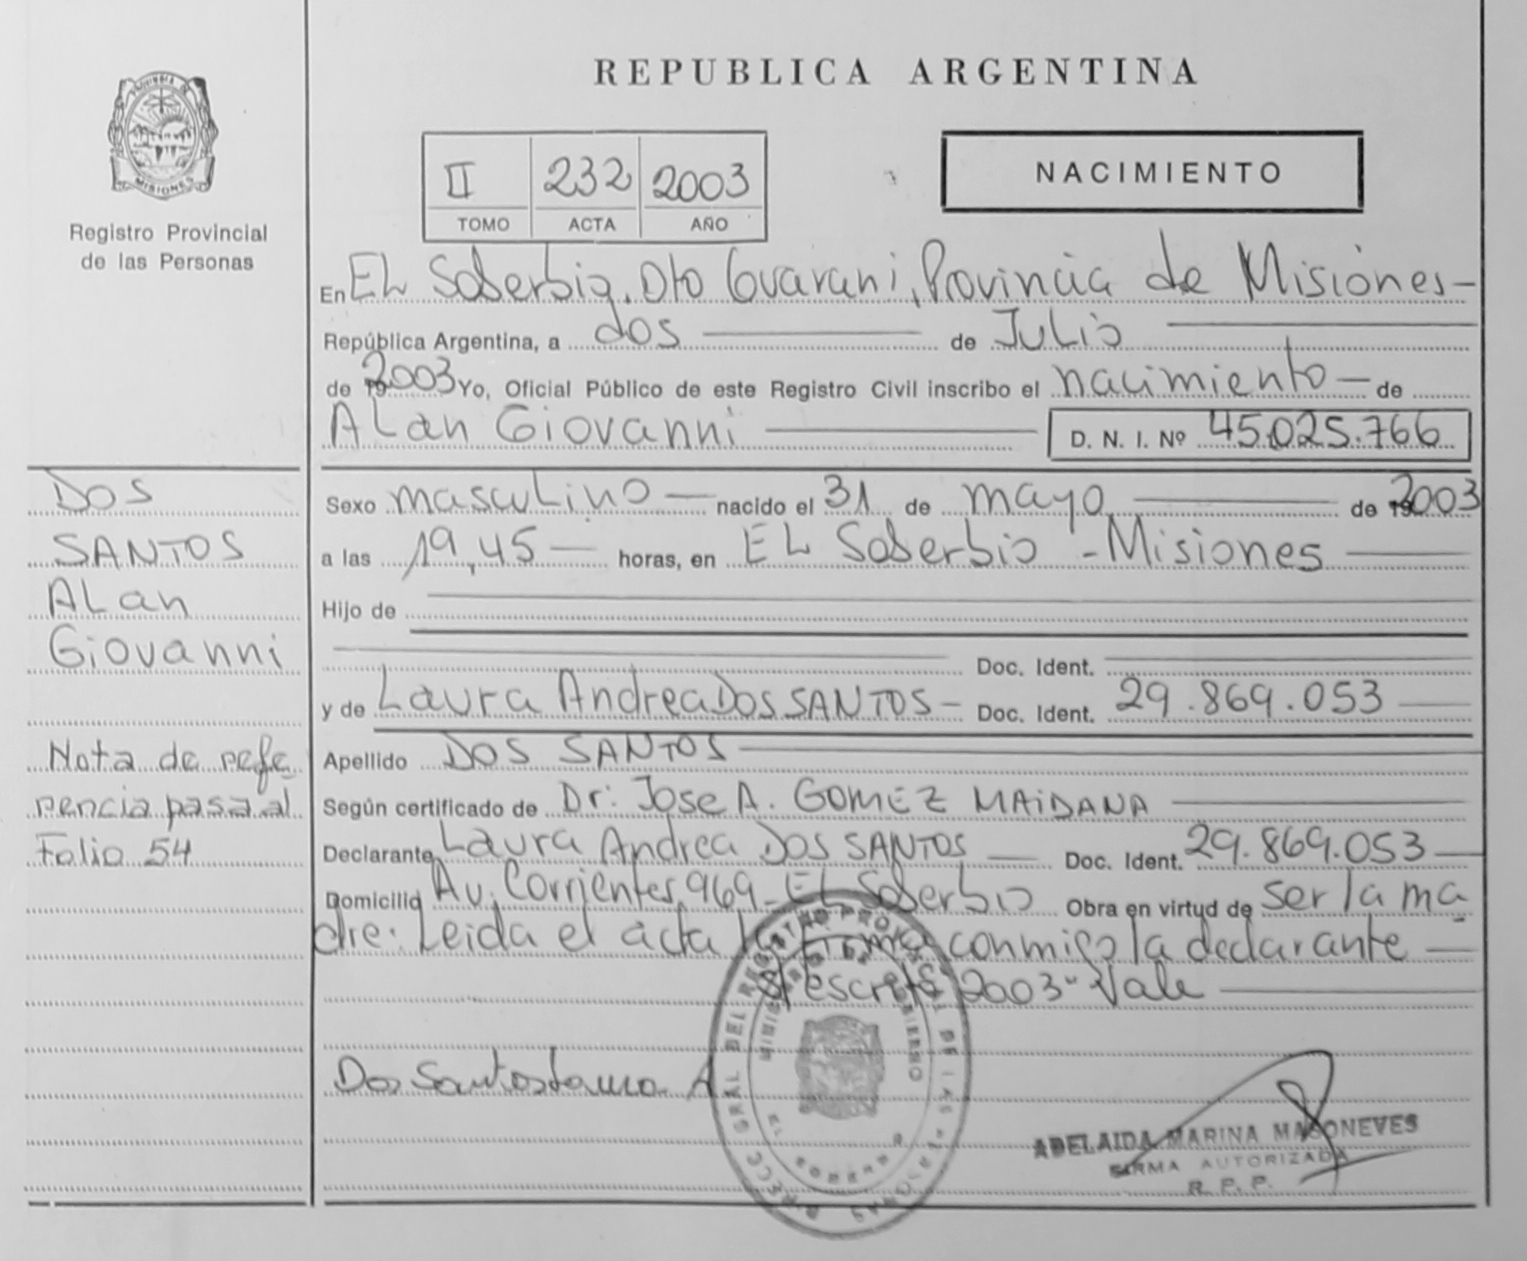 REPUBLICA ARGENTINA
MISIONES
Registro Provincial
de las Personas
II 232 2003
TOMO ACTA AÑO
NACIMIENTO
En EL Soberbio, Dto Guarani, Provincia de Misiones-
República Argentina, a dos de Julio
de 2003 Yo, Oficial Público de este Registro Civil inscribo el nacimiento de
Alan Giovanni D. N. I. Nº 45.025.766
DOS
SANTOS
ALan
Giovanni
Nota de refe
rencia pasa al
Folio 54
Sexo masculino nacido el 31 de mayo de 2003
a las 19,45 horas, en EL Soberbio - Misiones
Hijo de
Doc. Ident.
y de Laura Andrea Dos SANTOS - Doc. Ident. 29.869.053
Apellido DOS SANTOS
Según certificado de Dr: Jose A. GOMEZ MAIDANA
Declarante Laura Andrea Dos SANTOS Doc. Ident. 29.869.053
Domicilio Av. Corrientes 969 - EL Soberbio Obra en virtud de ser la ma
dre: Leida el acta la firma conmigo la declarante
escrito 2003- Vale
Dos Santos Laura A
ADELAIDA MARINA MASONEVES
FIRMA AUTORIZADA
R. P. P.